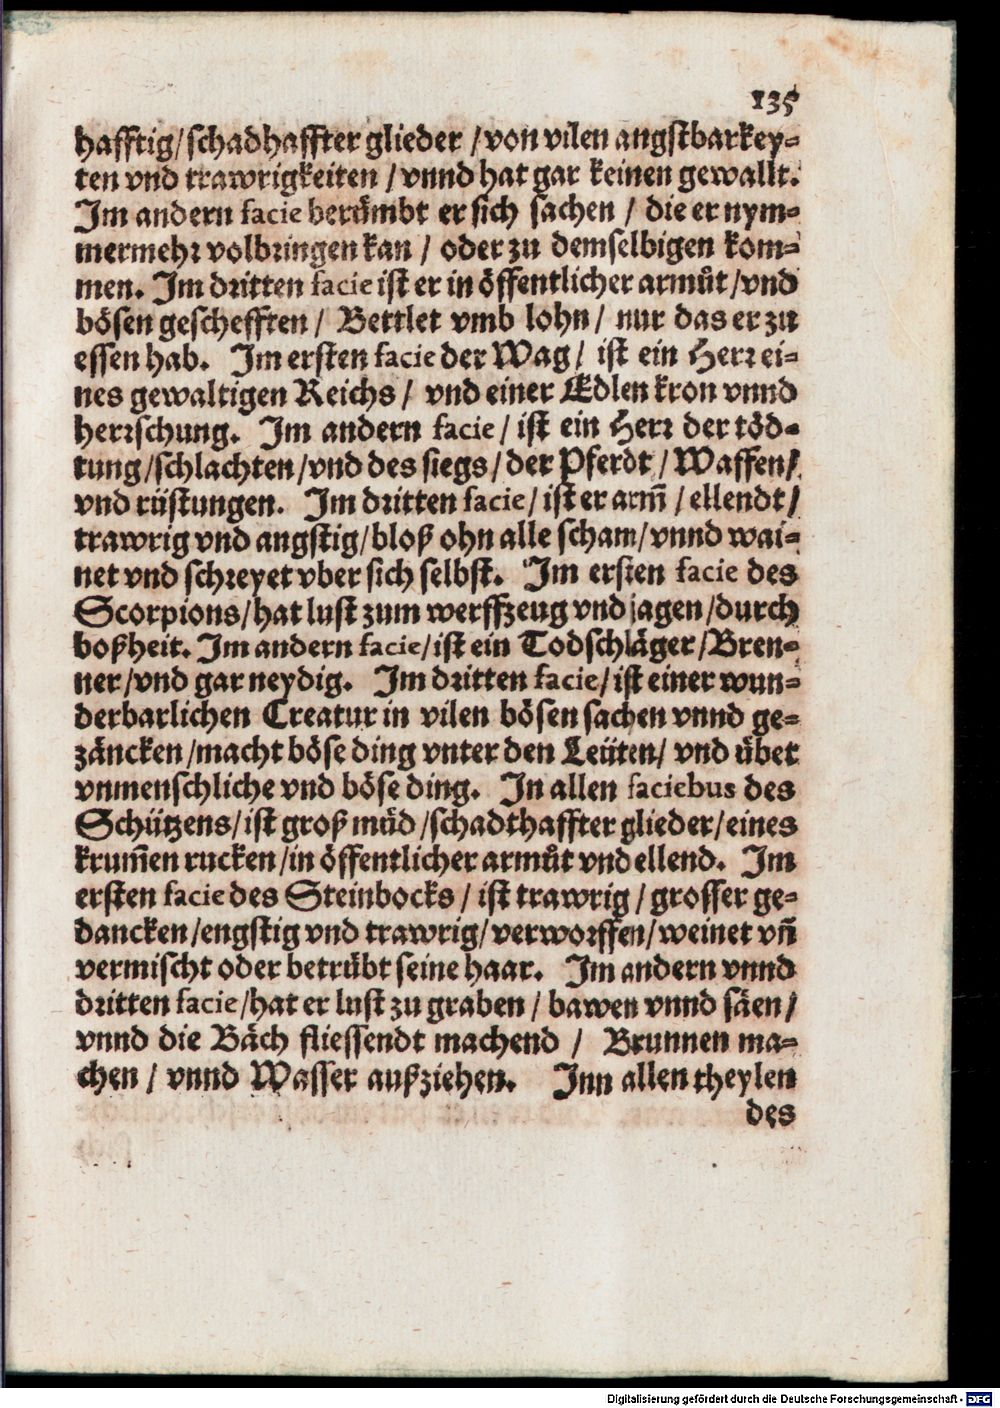 135
hafftig/schadhaffter glieder/von vilen angstbarkey-
ten vnd trawrigkeiten/vnnd hat gar keinen gewallt.
Im andern facie berümbt er sich sachen/ die er nym-
mermehr volbringen kan/ oder zu demselbigen kom-
men. Im dritten facie ist er in öffentlicher armůt/vnd
bösen geschefften/ Bettlet vmb lohn/ nur das er zu
essen hab. Im ersten facie der Wag/ ist ein Herr ei-
nes gewaltigen Reichs/ vnd einer Edlen kron vnnd
herrschung. Im andern facie/ ist ein Herr der töd-
tung/schlachten/vnd des siegs/der Pferdt/Waffen/
vnd rüstungen. Im dritten facie/ist er arm̃/ellendt/
trawrig vnd angstig/bloß ohn alle scham/vnnd wai-
net vnd schreyet vber sich selbst. Im ersten facie des
Scorpions/hat lust zum werffzeug vnd jagen/durch
boßheit. Im andern facie/ist ein Todschläger/Bren-
ner/vnd gar neydig. Im dritten facie/ist einer wun-
derbarlichen Creatur in vilen bösen sachen vnnd ge-
zäncken/macht böse ding vnter den Leüten/ vnd übet
vnmenschliche vnd böse ding. In allen faciebus des
Schützens/ist groß müd/schadthaffter glieder/eines
krum̃en rucken/in öffentlicher armůt vnd ellend. Im
ersten facie des Steinbocks/ist trawrig/grosser ge-
dancken/engstig vnd trawrig/verworffen/weinet vñ
vermischt oder betrübt seine haar. Im andern vnnd
dritten facie/hat er lust zu graben/bawen vnnd säen/
vnnd die Bäch fliessendt machend/ Brunnen ma-
chen/ vnnd Wasser außziehen. Inn allen theylen
des
Digitalisierung gefördert durch die Deutsche Forschungsgemeinschaft - DFG